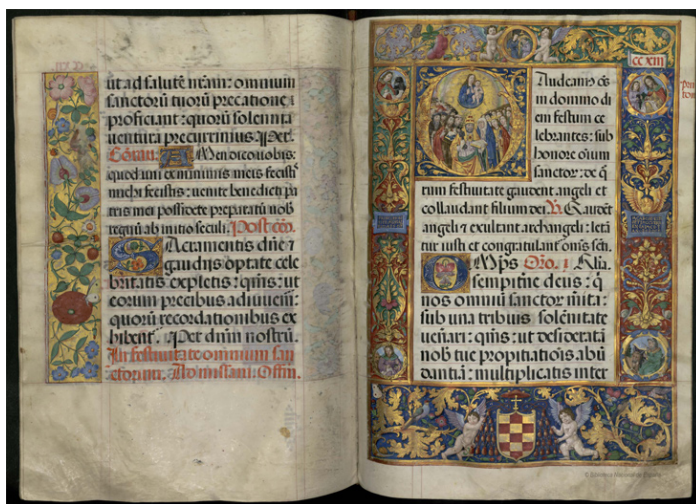 ut ad salutē nr̄am: omnium
sanctorū tuorū precatione
proficiant: quorū solennia
ventura precurrimus. Per.
Cōmu. Amen dico vobis:
quod uni ex minimis meis fecistis
mihi fecistis: venite benedicti pa
tris mei possidete preparatū vob
regnū ab initio seculi. Post cōo.
Sacramentis dn̄e ⁊
gaudijs optate cele
britatis expletis: qs̄: ut
eorum precibus adiuuem̄:
quorū recordationibus ex
hibent̄. Per dn̄m nostrū.
In festiuitate omnium san
ctorum. Ad missam. Offm̄.
ccxiii
Gaudeam9 oēs
in domino di
em festum ce
lebrantes: sub
honore oīum
sanctor: de q̄
rum festiuitate gaudent angeli et
collaudant filium dei. V. Gaudēt
angeli ⁊ exultant archangeli: letā
tur iusti et congratulant̄ om̄s sc̄ti.
Oro. Alia.
sempit̄ne deus: q̄
nos omniū sanctor m̄ita:
sub una tribuis solēnitate
uen̄ari: qs̄: ut desideratā
nob̄ tue propitiatiōis abū
dantiā: multiplicatis inter
© Biblioteca Nacional de España